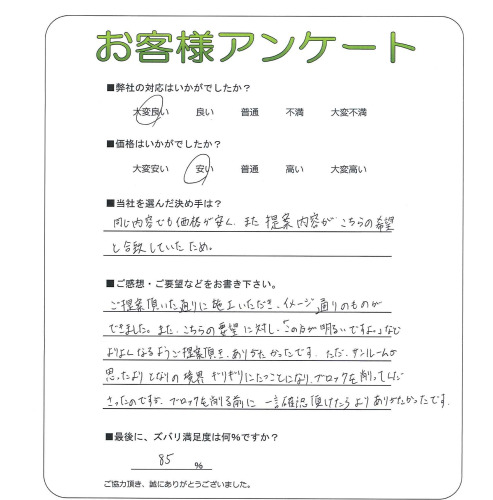 お客様アンケート
■弊社の対応はいかがでしたか?
大変良い 良い 普通 不満 大変不満
■価格はいかがでしたか?
大変安い 安い 普通 高い 大変高い
■当社を選んだ決め手は?
同じ内容でも価格が安く、また提案内容がこちらの希望
と合致していたため。
■ご感想・ご要望などをお書き下さい。
ご提案頂いた通りに施工いただき、イメージ通りのものが
できました。また、こちらの要望に対し、「この方が明るいですよ。」など
よりよくなるようご提案頂き、ありがたかったです。ただ、サンルームが
思ったよりとなりの境界ギリギリにたつことになり、ブロックを削ってくだ
さったのですが、ブロックを削る前に一言確認頂けたらよりありがたかったです。
■最後に、ズバリ満足度は何%ですか?
85 %
ご協力頂き、誠にありがとうございました。